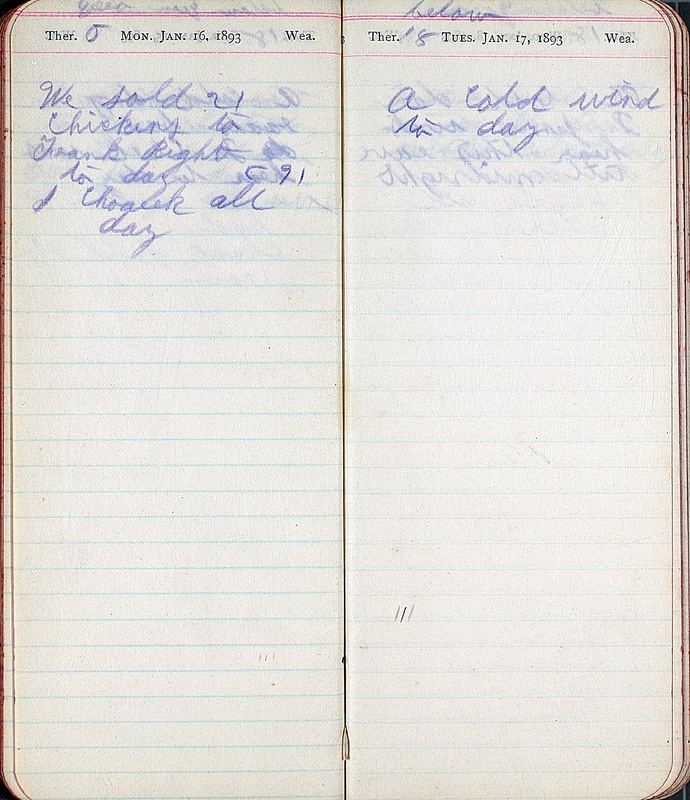 Ther. 5 Mon. Jan. 16, 1893 Wea.
We sold 21
Chickens to
Frank Right
to day 5 91
I all
day
below
Ther. 18 Tues. Jan. 17, 1893 Wea.
A cold wind
to day